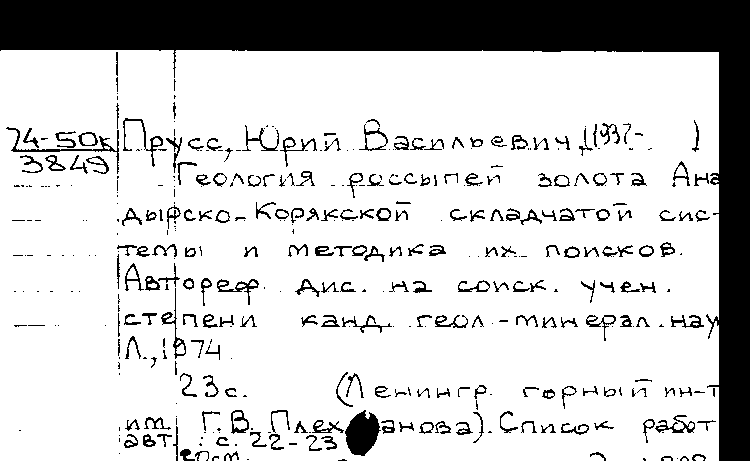 74-50к Прусс, Юрий Васильевич, [1937- ]
3849
Геология россыпей золота Ана
дырско-Корякской складчатой сис-
темы и методика их поисков.
Автореф. дис. на соиск. учен.
степени канд. геол.-минерал. нау
Л., 1974.
23 с. (Ленингр. горный ин-т
им. Г.В. Плеханова). Список работ
авт.: с. 22-23